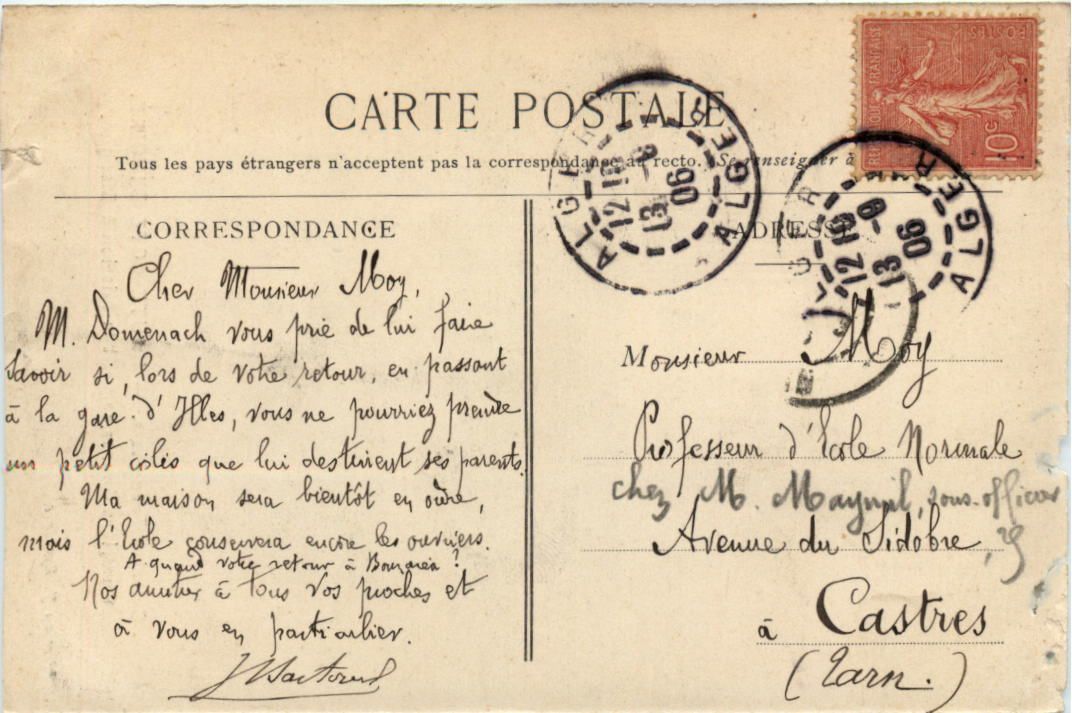 CARTE POSTALE
Tous les pays étrangers n'acceptent pas la correspondance au recto. (Se renseigner à
RÉPUBLIQUE FRANÇAISE
POSTES
10c
ALGER
ALGER
12 13 -9 06
ALGER
ALGER
12 13 -9 06
CORRESPONDANCE
Cher Monsieur Moy,
M. Domenach vous prie de lui faire
savoir si, lors de votre retour, en passant
à la gare d'Illes, vous ne pourriez prendre
un petit colis que lui destinent ses parents.
Ma maison sera bientôt en ordre,
mais l'Ecole conservera encore les ouvriers.
A quand votre retour à Bouzaréa ?
Nos amitiés à tous vos proches et
à vous en particulier.
ADRESSE
Monsieur Moy
Professeur d'Ecole Normale
chez M. Maynil, sous-officier
Avenue du Sidobre, 29
à Castres
(Tarn.)